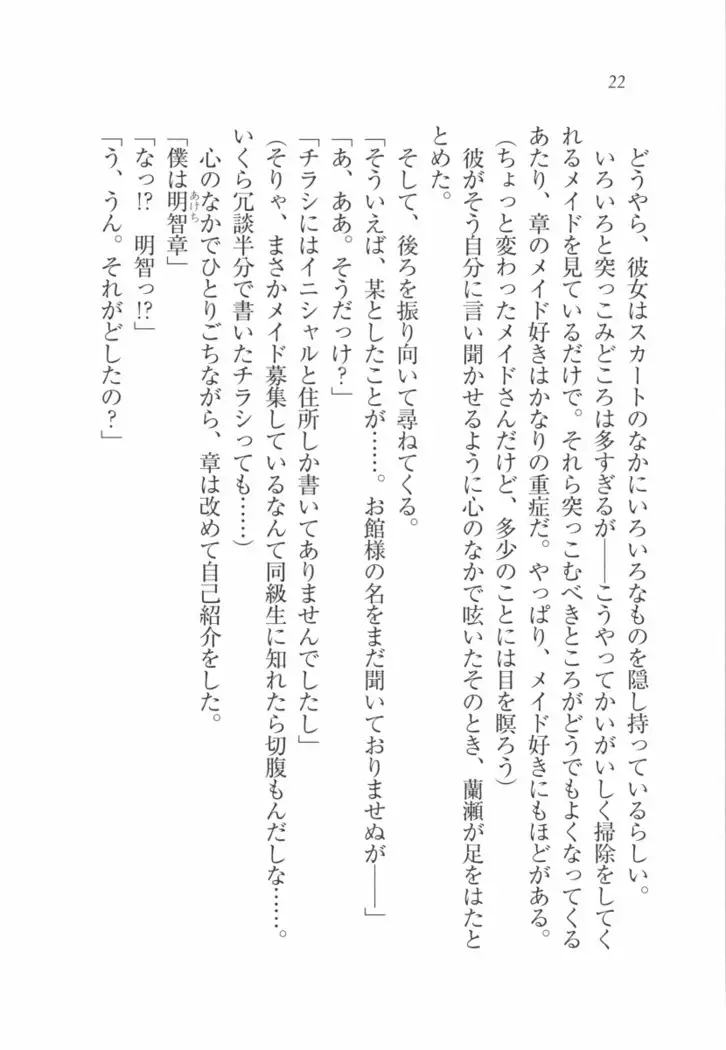 22
どうやら、彼女はスカートのなかにいろいろなものを隠し持っているらしい。
いろいろと突っこみどころは多すぎるが――こうやってかいがいしく掃除をしてく
れるメイドを見ているだけで。それら突っこむべきところがどうでもよくなってくる
あたり、章のメイド好きはかなりの重症だ。やっぱり、メイド好きにもほどがある。
(ちょっと変わったメイドさんだけど、多少のことには目を瞑ろう)
彼がそう自分に言い聞かせるように心のなかで呟いたそのとき、蘭瀬が足をはたと
とめた。
そして、後ろを振り向いて尋ねてくる。
「そういえば、某としたことが……。お館様の名をまだ聞いておりませぬが――」
「あ、ああ。そうだっけ?」
「チラシにはイニシャルと住所しか書いてありませんでしたし」
(そりゃ、まさかメイド募集しているなんて同級生に知れたら切腹もんだしな……。
いくら冗談半分で書いたチラシっても……)
心のなかでひとりごちながら、章は改めて自己紹介をした。
「僕は明智章」
あけち
「なっ!? 明智っ!?」
「う、うん。それがどしたの?」